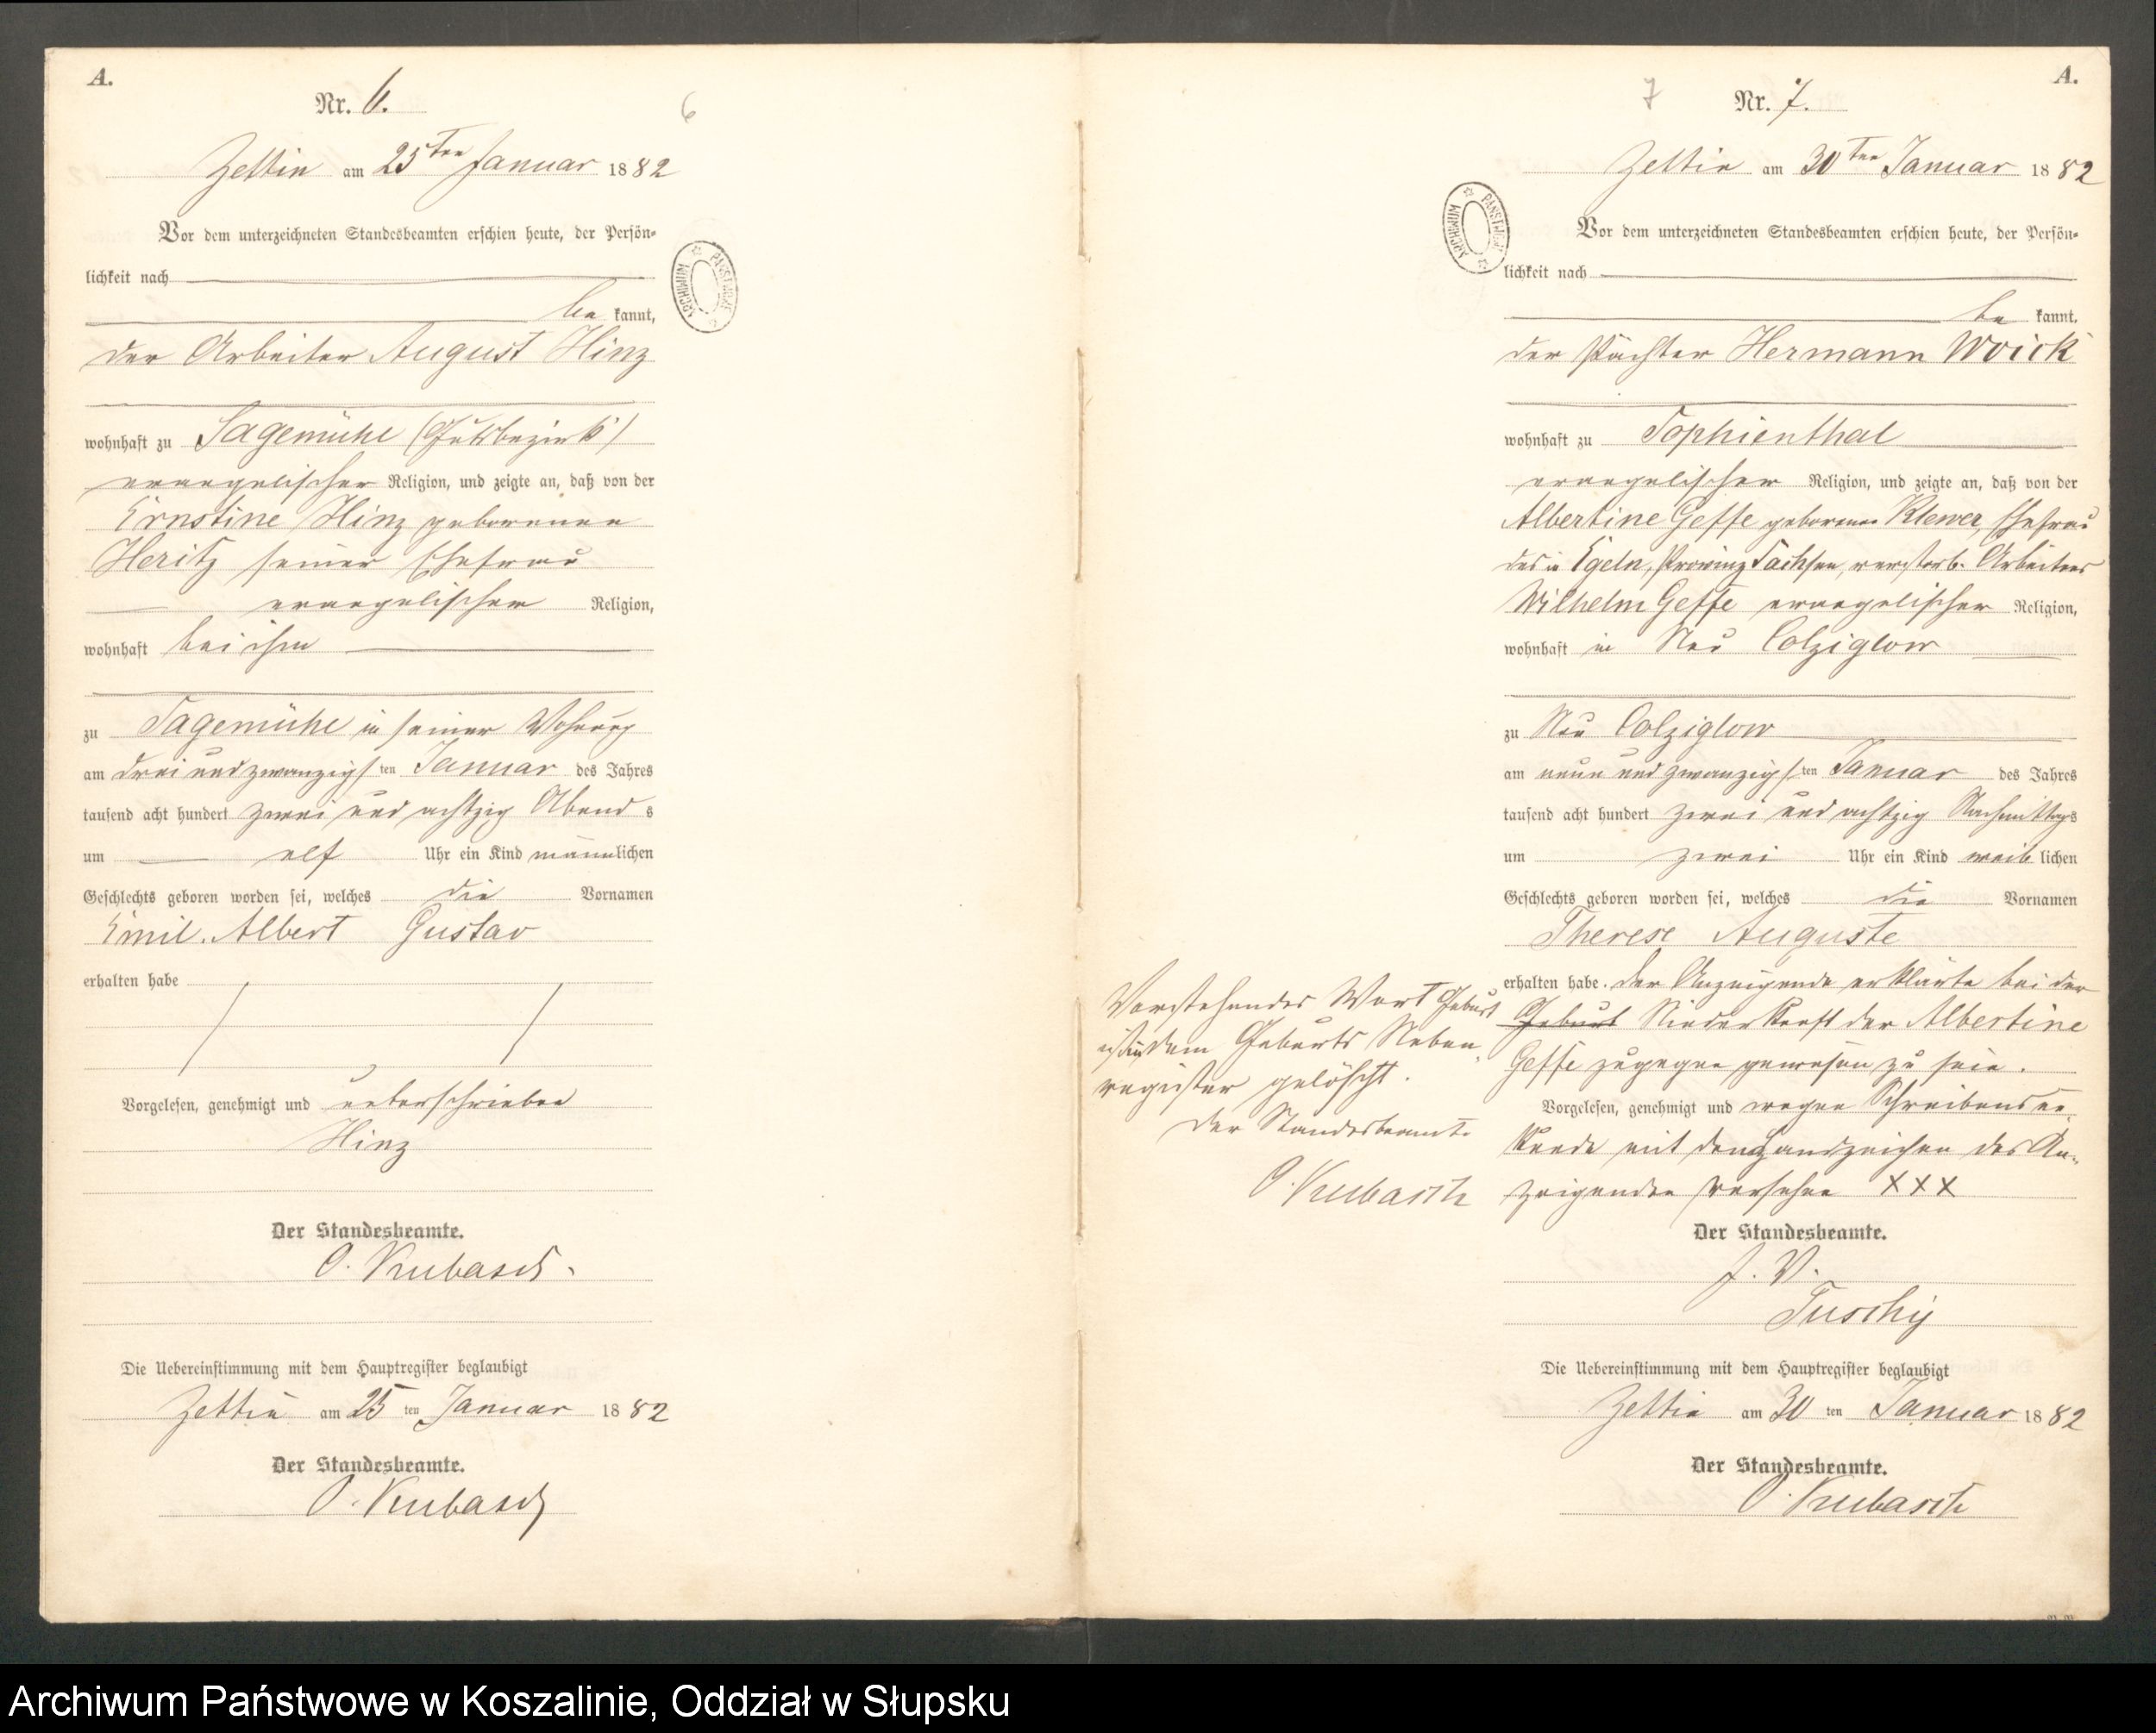 A.
Nr. 6.
6
Zettin am 25ten Januar 1882
Vor dem unterzeichneten Standesbeamten erschien heute, der Persön-
lichkeit nach
be kannt,
der Arbeiter August Hinz
wohnhaft zu Sagemühl (Gutsbezirk)
evangelischer Religion, und zeigte an, daß von der
Ernstine Hinz geborenen
Heritz seiner Ehefrau
evangelischer Religion,
wohnhaft bei ihm
zu Sagemühl in seiner Wohnung
am drei und zwanzigsten Januar des Jahres
tausend acht hundert zwei und achtzig Abends
um elf Uhr ein Kind männlichen
Geschlechts geboren worden sei, welches die Vornamen
Emil Albert Gustav
erhalten habe
Vorgelesen, genehmigt und unterschrieben
Hinz
Der Standesbeamte.
O. Kubasch.
Die Uebereinstimmung mit dem Hauptregister beglaubigt
Zettin am 25 ten Januar 1882
Der Standesbeamte.
O. Kubasch
ARCHIWUM PAŃSTWOWE
A.
7
Nr. 7.
Zettin am 30ten Januar 1882
Vor dem unterzeichneten Standesbeamten erschien heute, der Persön-
lichkeit nach
be kannt,
der Pächter Hermann Woick
wohnhaft zu Sophienthal
evangelischer Religion, und zeigte an, daß von der
Albertine Geffe geborenen Klewer, Ehefrau
des in Egeln, Provinz Sachsen, verstorb. Arbeiters
Wilhelm Geffe evangelischer Religion,
wohnhaft in Neu Colziglow
zu Neu Colziglow
am neun und zwanzigsten Januar des Jahres
tausend acht hundert zwei und achtzig Nachmittags
um zwei Uhr ein Kind weiblichen
Geschlechts geboren worden sei, welches die Vornamen
Therese Auguste
erhalten habe. Der Anzeigende erklärte bei der
Geburt Niederkunft der Albertine
Geffe zugegen gewesen zu sein.
Vorgelesen, genehmigt und wegen Schreibensun-
kunde mit dem Handzeichen des An-
zeigenden versehen XXX
Der Standesbeamte.
J. V.
Tuschy
Die Uebereinstimmung mit dem Hauptregister beglaubigt
Zettin am 30 ten Januar 1882
Der Standesbeamte.
O. Kubasch
Vorstehendes Wort Geburt
ist in dem Geburts Neben-
register gelöscht.
Der Standesbeamte
O. Kubasch
ARCHIWUM PAŃSTWOWE
Archiwum Państwowe w Koszalinie, Oddział w Słupsku